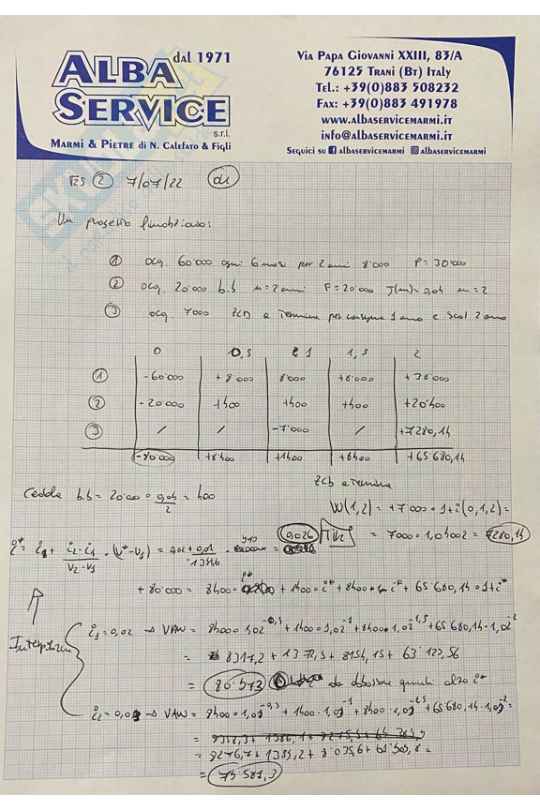 dal 1971
ALBA
SERVICE
s.r.l.
MARMI & PIETRE di N. Calefato & Figli
VIA PAPA GIOVANNI XXIII, 83/A
76125 TRANI (BT) ITALY
TEL.: +39(0)883 508232
FAX: +39(0)883 491978
WWW.ALBASERVICEMARMI.IT
INFO@ALBASERVICEMARMI.IT
SEGUICI SU ALBASERVICEMARMI ALBASERVICEMARMI
ES 2 7/07/22
Un progetto finanziario:
① acq. 60'000 ogni 6 mesi per 2 anni 8'000 P=30'000
② acq. 20'000 b.b n=2 anni F=20'000 m=2
③ acq. 7000 ZCB a Termine per consegna 1 anno e Scad 2 anno
0 0,5 1 1,5 2
① -60'000 +8'000 8'000 +8'000 +38'000
② -20'000 +400 +400 +400 +20'400
③ / / -7'000 / +7280,14
-80'000 +8400 +1400 +8400 +65'680,14
Cedola b.b = 20'000 · 0,04/2 = 400
ZCB a Termine
W(1,2) = +7'000 · 1+i(0,1,2) =
= 7000 · 1,04002 = 7280,14
i* = i₁ + (i₂-i₁)/(V₂-V₁) · (V*-V₁) = 0,026 TIR
+80'000 =
i₁=0,02 → VAN = 8400·1,02^-0,5 + 1400·1,02^-1 + 8400·1,02^-1,5 + 65'680,14·1,02^-2
= 8317,2 + 1372,5 + 8154,15 +
= 80'973
i₂=0,03 → VAN = 8400·1,03^-0,5 + 1400·1,03^-1 + 8400·1,03^-1,5 + 65'680,14·1,03^-2 =
= 8276,7 + 1359,2 + 8035,6 +